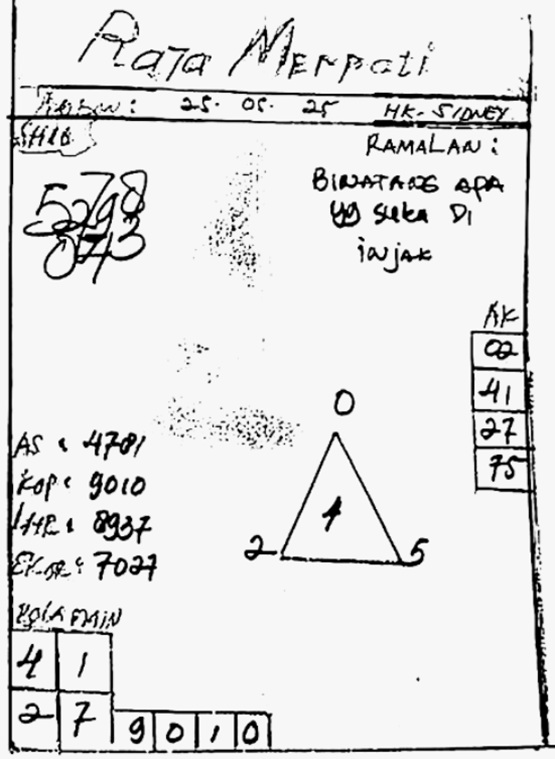 Raja Merpati
25. 05. 25 HK-SIDNEY
RAMALAN:
BINATANG APA
yg suka Di
injak
578
KK
02
41
27
75
0
4
2 5
AS : 4781
KOP : 9010
: 8937
EKOR : 7027
POLA MAIN
4 1
2 7
9 0 1 0